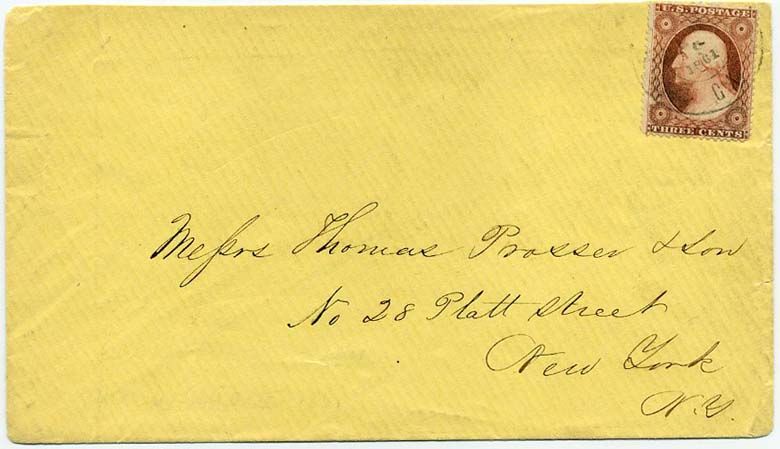 U.S. POSTAGE
1861
C
THREE CENTS
Messrs Thomas Prosser & Son
No 28 Platt Street
New York
N.Y.